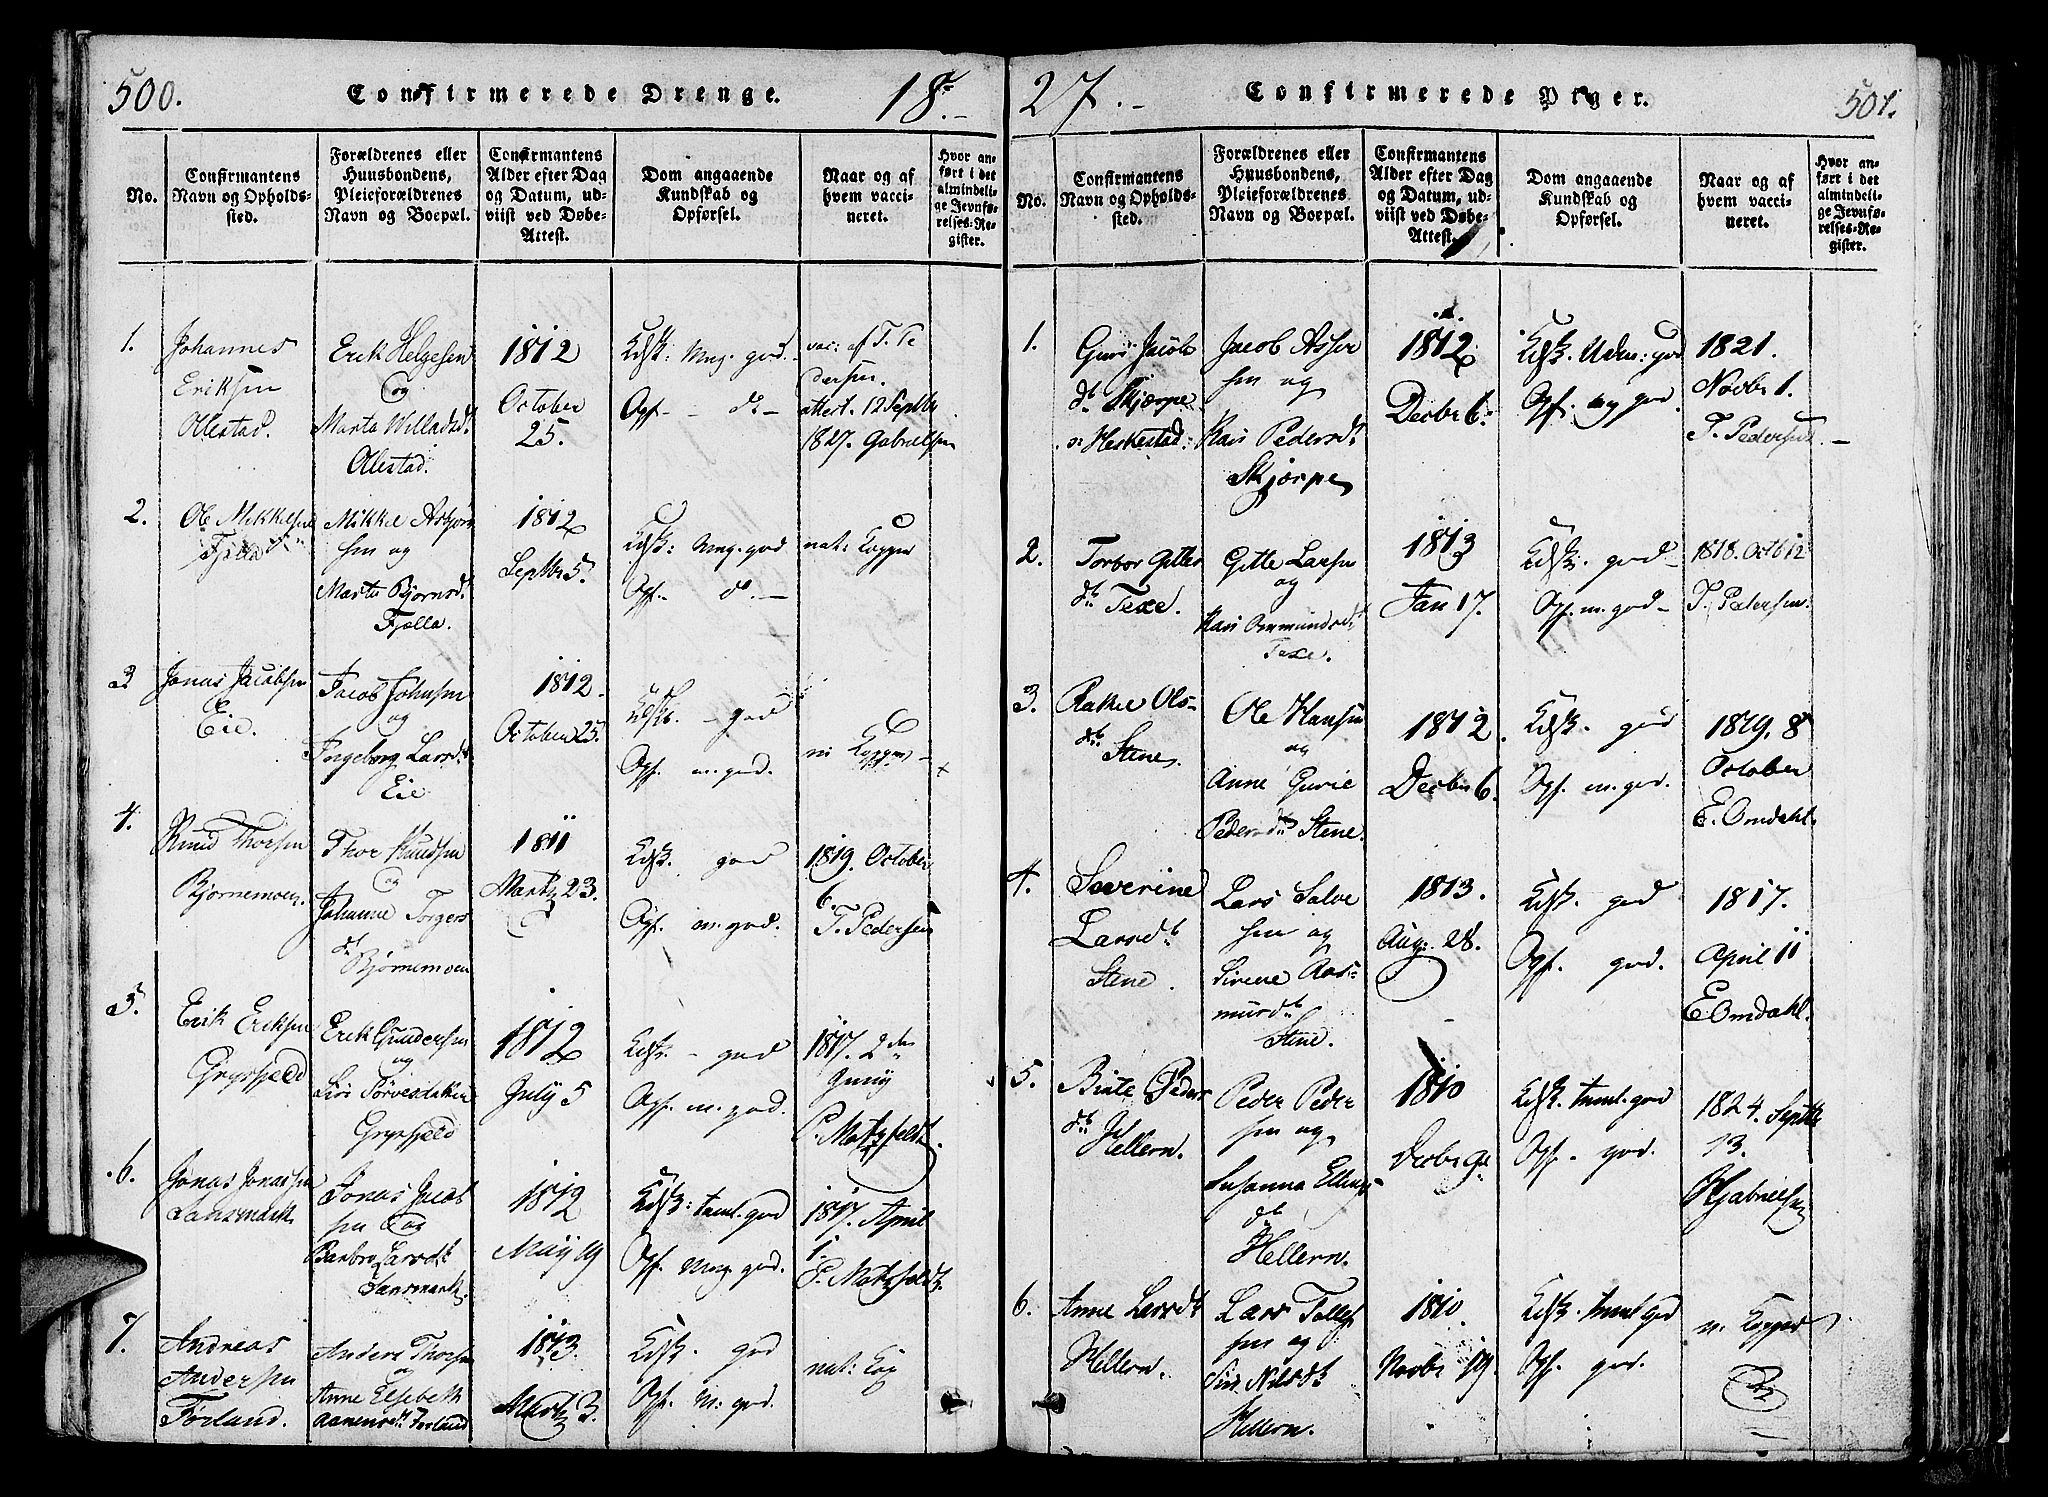 500.
Confirmerede Drenge.
18
No.
Confirmantens
Navn og Opholds-
sted.
Forældrenes eller
Huusbondens,
Pleieforældrenes
Navn og Boepæl.
Confirmantens
Alder efter Dag
og Datum, ud-
viist ved Døbe-
Attest.
Dom angaaende
Kundskab og
Opførsel.
Naar og af
hvem vacci-
neret.
Hvor an-
ført i det
almindeli-
ge Jevnfø-
relses-Re-
gister.
1.
Johannes
Eriksen
Ollestad.
Erik Helgesen
og
Marta Willadsd.
Ollestad.
1812
October
25.
Kdsk: Mng. god.
Opf. - d. -
vac: af T. Pe
dersen.
attest. 12 Septbr
1827. Gabrielsen
2.
Ole Mikkelsen
Fjella
Mikkel Asbjørn
sen og
Marta Bjørnsd.
Fjella.
1812
Septbr 5.
Kdsk: Mng. god
Opf. d. -
nat: Kopper
3
Jonas Jacobsen
Eie.
Jacob Johnsen
og
Ingeborg Larsd.
Eie
1812.
October 25.
Kdsk. - god
Opf. m. god.
n. Kopper -
+
4.
Knud Thorsen
Bjørnemoen.
Thor Knudsen
og
Johanne Torgers
dt
Bjørnemoen
1811
Marts 23.
Kdsk. god
Opf. m. god.
1819. October
6.
T. Pedersen
5.
Erik Eriksen
Grysfjeld
Erik Gundersen
og
Siri Torvesdatter
Grysfjeld
1812
July 5
Kdsk. - god
Opf. m. god.
1817. 2den
Juny
P. Matzfeldt.
6.
Jonas Jonassen
Lansmark
Jonas Jacob
sen og
Barbro Larsd.
Lansmark
1812
May 19
Kdsk: teml. god
Opf. Mng. god.
1817. April
1.
P. Matzfeldt.
7.
Andreas
Andersen
Førland.
Anders Thorsen
og
Anne Elsebeth
Aanensdt. Førland
1813.
Marts 3.
Kdsk. god
Opf. m: god.
nat: Kop
27.
Confirmerede Piger.
501.
No.
Confirmantens
Navn og Opholds-
sted.
Forældrenes eller
Huusbondens,
Pleieforældrenes
Navn og Boepæl.
Confirmantens
Alder efter Dag
og Datum, ud-
viist ved Døbe-
Attest.
Dom angaaende
Kundskab og
Opførsel.
Naar og af
hvem vacci-
neret.
Hvor an-
ført i det
almindeli-
ge Jevnfø-
relses-Re-
gister.
1.
Guri Jacobs
dt. Skjørpe
Heskestad.
Jacob Asser
sen og
Kari Pedersdt
Skjørpe
1812
Decbr 6.
Kdsk. Udm: god
Opf. og god.
1821.
Novbr 1.
T. Pedersen. -
2.
Torbor Gitles
dt. Texe.
Gitle Larsen
og
Kari Ommundsdt
Texe.
1813
Jan 17.
Kdsk. god -
Opf. m. god -
1818. Octb 12
T. Pedersen.
3.
Rakel Ols-
dt. Stene.
Ole Hansen
og
Anne Gurie
Pedersdt Stene.
1812.
Decbr 6.
Kdsk. god
Opf. m. god.
1819. 8
October
E. Omdahl.
4.
Severine
Larsdt.
Stene.
Lars Salve
sen og
Sirene Aas-
mundsdt
Stene.
1813.
Aug: 28.
Kdsk. god
Opf. god.
1817.
April 11
E. Omdahl.
5.
Birte Peders
dt. Hellern.
Peder Peder
sen og
Susanna Ellings
dt
Hellern.
1810
Decbr 9.
Kdsk. teml. god
Opf. god.
1824. Septbr
13.
Gabrielsen
6.
Anne Larsdt
Hellern.
Lars Tollef
sen og
Siri Nilsdt
Hellern.
1810.
Novbr 19.
Kdsk. teml. god
Opf. god.
n. Kopper